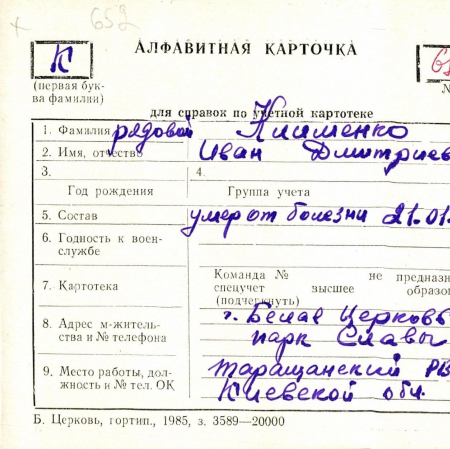 652
АЛФАВИТНАЯ КАРТОЧКА
К
(первая бук-
ва фамилии)
№
для справок по учетной картотеке
1. Фамилия рядовой Клименко
2. Имя, отчество Иван Дмитриев
3.
4.
Год рождения
Группа учета
5. Состав умер от болезни 21.01.
6. Годность к воен-
службе
7. Картотека
Команда № не предназн
спецучет высшее образо
(подчеркнуть)
8. Адрес м-житель-
ства и № телефона
г. Белая Церковь
парк Славы
9. Место работы, дол-
жность и № тел. ОК
Таращанский РВ
Киевской обл.
Б. Церковь, гортип., 1985, з. 3589—20000